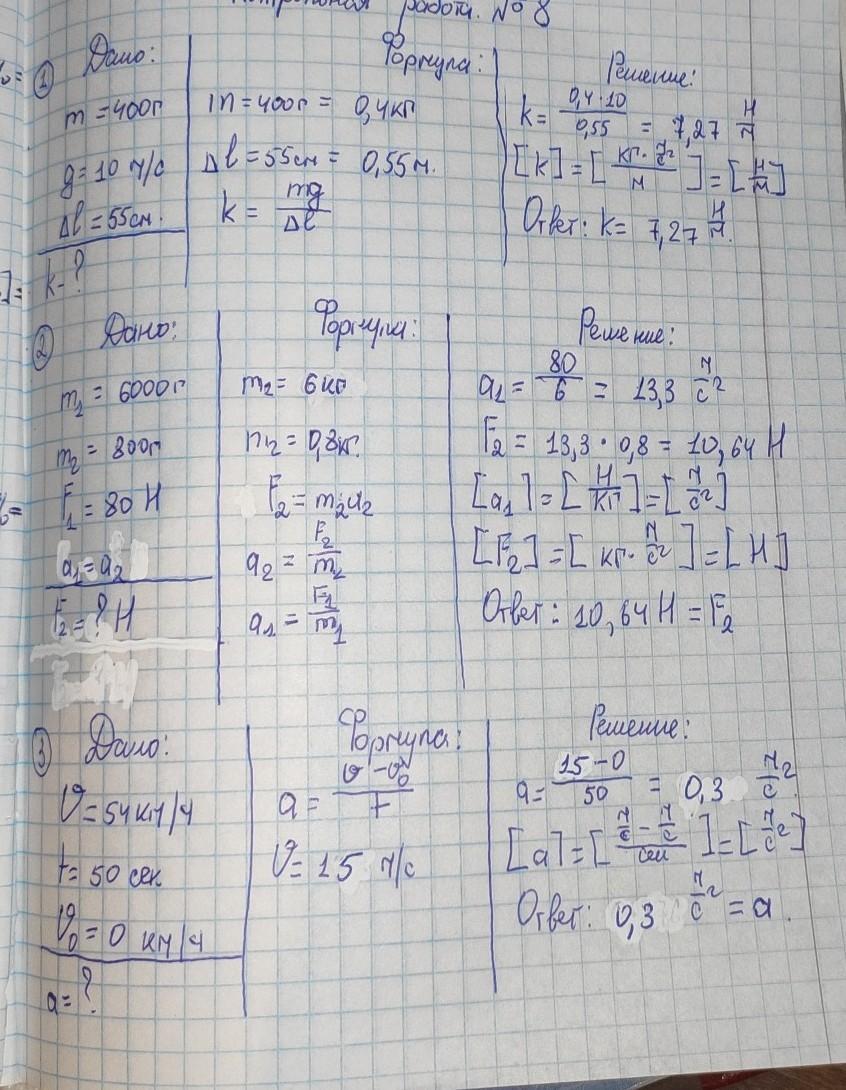 Контрольная работа. № 8
① Дано:
m = 400г
g = 10 м/с
Δl = 55см.
k - ?
Формула:
m = 400г = 0,4кг
Δl = 55см = 0,55м.
k = mg/Δl
Решение:
k = 0,4·10/0,55 = 7,27 Н/м
[k] = [кг·м/с²/м] = [Н/м]
Ответ: k = 7,27 Н/м.
② Дано:
m₁ = 6000г
m₂ = 800г
F₁ = 80 Н
a₁ = a₂
F₂ = ? Н
Формула:
m₂ = 6кг
m₂ = 0,8кг.
F₂ = m₂a₂
a₂ = F₂/m₂
a₁ = F₁/m₁
Решение:
a₁ = 80/6 = 13,3 м/с²
F₂ = 13,3 · 0,8 = 10,64 Н
[a₁] = [Н/кг] = [м/с²]
[F₂] = [кг·м/с²] = [Н]
Ответ: 10,64 Н = F₂
③ Дано:
υ = 54км/ч
t = 50 сек
υ₀ = 0 км/ч
a = ?
Формула:
a = υ - υ₀/t
υ = 15 м/с
Решение:
a = 15 - 0/50 = 0,3 м/с²
[a] = [м/с - м/с/сек] = [м/с²]
Ответ: 0,3 м/с² = a.